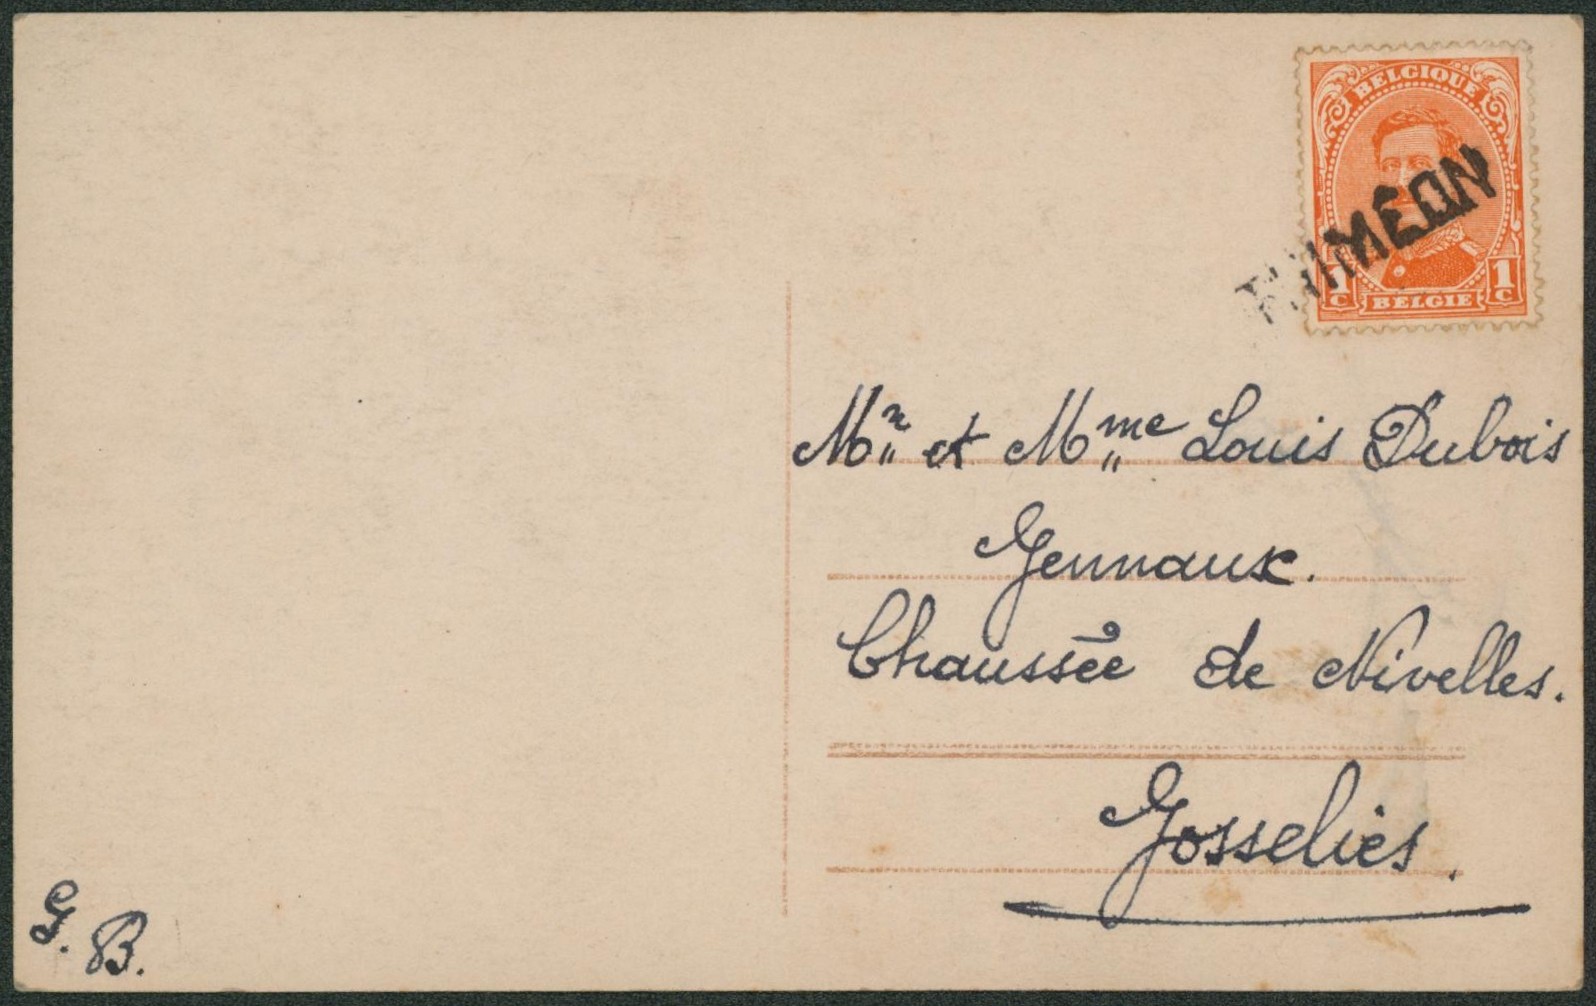 BELGIQUE
1 C BELGIË 1 C
Mr et Mme Louis Dubois
Gennaux.
Chaussée de Nivelles.
Gosselies.
G. B.